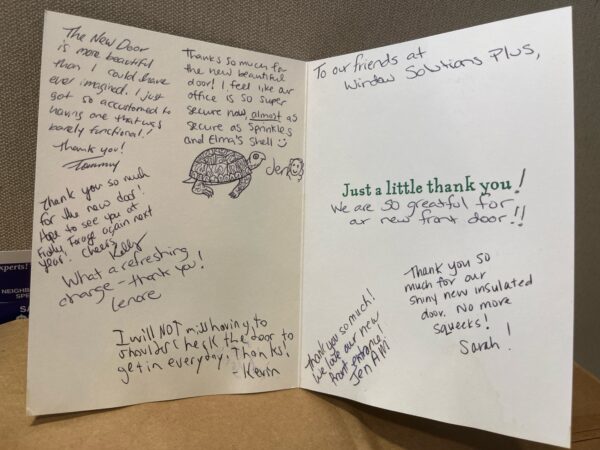 The New Door
is more beautiful
than I could have
ever imagined. I just
got so accustomed to
having one that was
barely functional!
Thank you!
Tammy
Thanks so much for
the new beautiful
door! I feel like our
office is so super
secure now, almost as
secure as Sprinkles
and Elma's Shell
Jen
Thank you so much
for the new door!
Hope to see you at
Frolic, Forage again next
year! Cheers
Kelly
What a refreshing
change - thank you!
Lenore
I will NOT miss having to
shoulder check the door to
get in everyday. Thanks!
- Kevin
To our friends at
Window Solutions Plus,
Just a little thank you!
We are so greatful for
our new front door!!
Thank you so
much for our
shiny new insulated
door. No more
squeeks!
Sarah!
Thank you so much!
We love our new
front entrany!
Jen Ami
xperts!
NEIGHB
SPE
SA